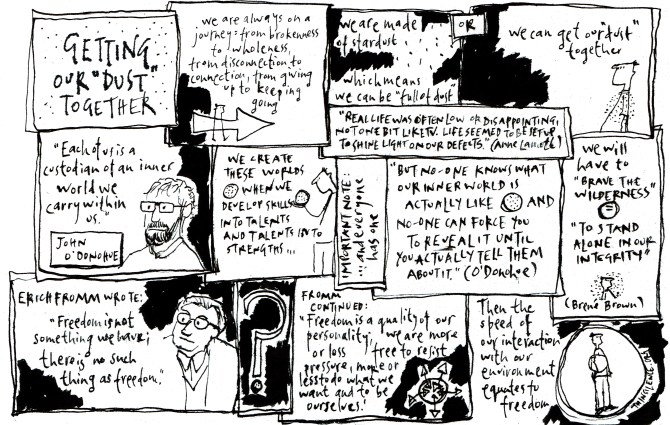 GETTING
OUR "DUST"
TOGETHER
we are always on a
journey: from brokenness
to wholeness,
from disconnection to
connection, from giving
up to keeping
going
we are made
of stardust
which means
we can be "full of dust"
OR
we can get our "dust"
together
"REAL LIFE WAS OFTEN LOW OR DISAPPOINTING,
NOT ONE BIT LIKE TV. LIFE SEEMED TO BE SET UP
TO SHINE LIGHT ON OUR DEFECTS." (Anne Lamott)
"Each of us is a
custodian of an inner
world we
carry within
us."
JOHN
O'DONOHUE
WE CREATE
THESE WORLDS
WHEN WE
DEVELOP SKILLS
INTO TALENTS
AND TALENTS INTO
STRENGTHS...
IMPORTANT NOTE:
...and everyone
has one
"BUT NO-ONE KNOWS WHAT
OUR INNER WORLD IS
ACTUALLY LIKE AND
NO-ONE CAN FORCE YOU
TO REVEAL IT UNTIL
YOU ACTUALLY TELL THEM
ABOUT IT." (O'Donohue)
we will
have to
"BRAVE THE
WILDERNESS"
"TO STAND
ALONE IN OUR
INTEGRITY"
(Brené Brown)
ERICH FROMM WROTE:
"Freedom is not
something we have;
there is no such
thing as freedom."
?
FROMM
CONTINUED:
"Freedom is a quality of our
personality; we are more
or less free to resist
pressure, more or
less to do what we
want and to be
ourselves."
Then the
speed of
our interaction
with our
environment
equates to
freedom